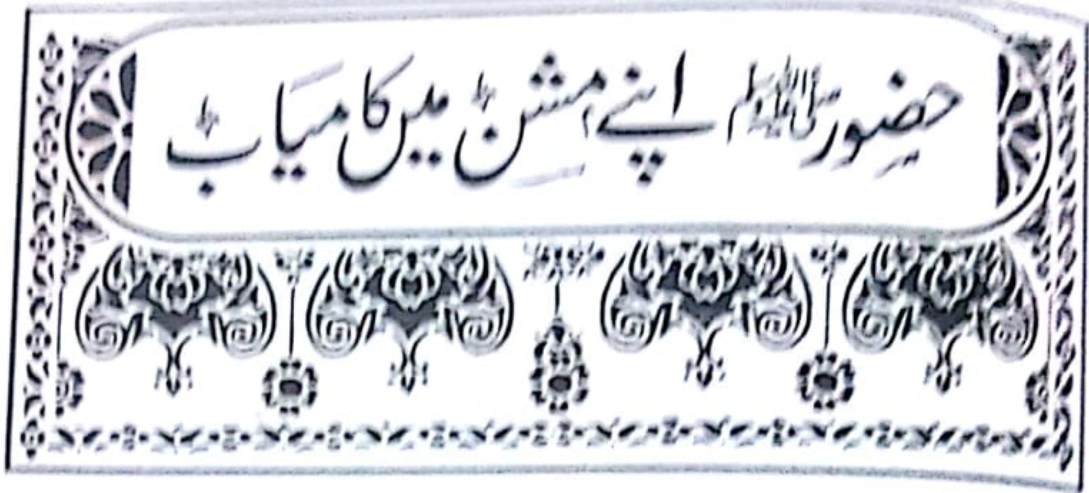 حضور ﷺ اپنے مشن میں کامیاب